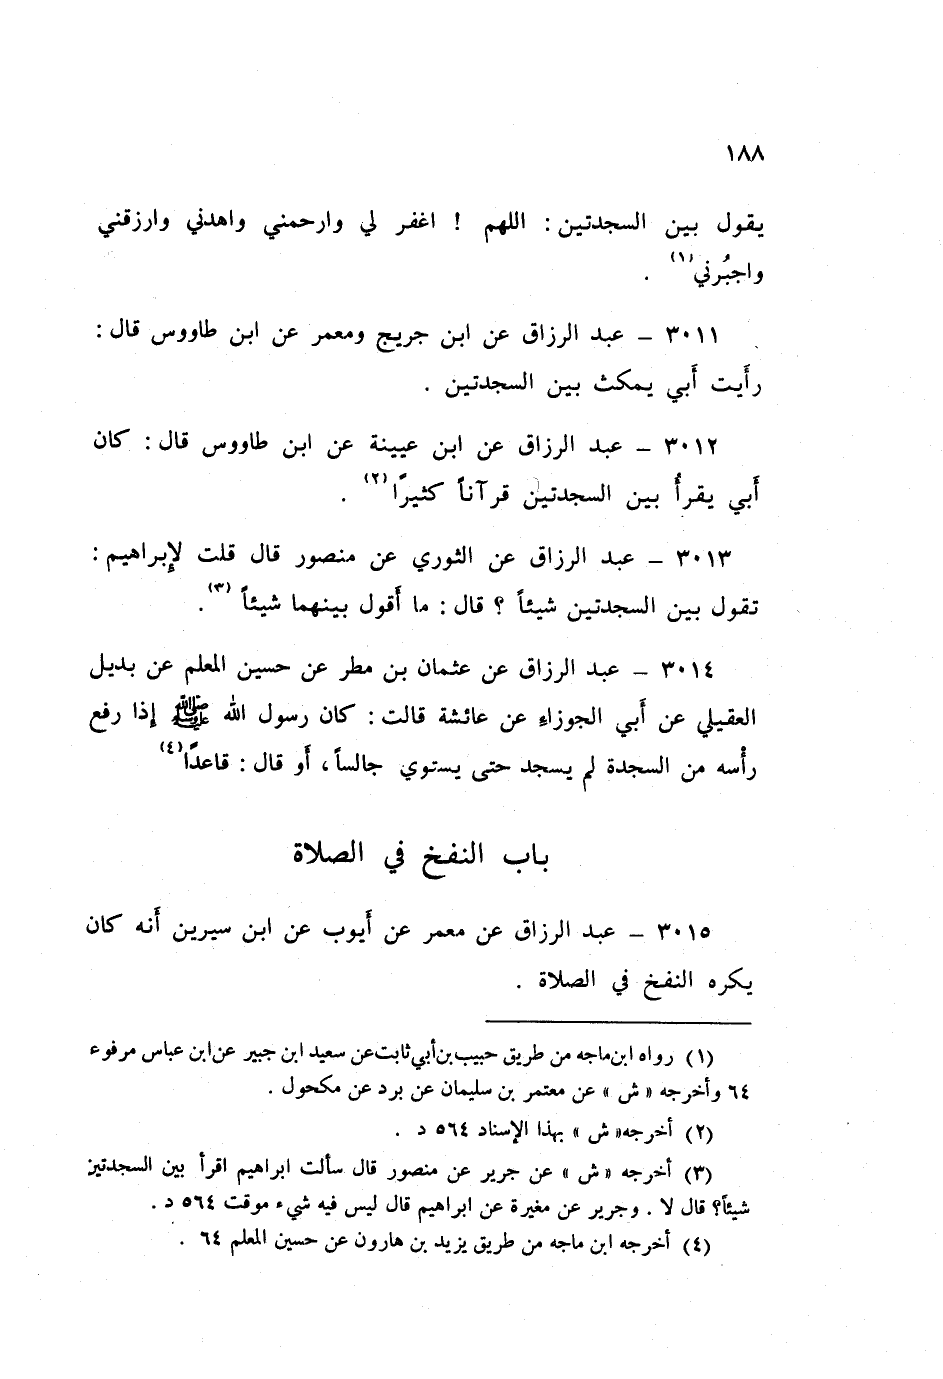 ١٨٨
يقول بين السجدتين : اللهم ! اغفر لي وارحمني واهدني وارزقني
واجبُرني(١) .
٣٠١١ – عبد الرزاق عن ابن جريج ومعمر عن ابن طاووس قال :
رأَيت أَبي يمكث بين السجدتين .
٣٠١٢ – عبد الرزاق عن ابن عيينة عن ابن طاووس قال : كان
أَبي يقرأُ بين السجدتين قرآناً كثيرًا(٢) .
٣٠١٣ – عبد الرزاق عن الثوري عن منصور قال قلت لإِبراهيم :
تقول بين السجدتين شيئاً ؟ قال : ما أَقول بينهما شيئاً (٣).
٣٠١٤ – عبد الرزاق عن عثمان بن مطر عن حسين المعلم عن بديل
العقيلي عن أَبي الجوزاءِ عن عائشة قالت : كان رسول الله ﷺ إِذا رفع
رأْسه من السجدة لم يسجد حتى يستوي جالساً ، أَو قال : قاعدًا(٤)
باب النفخ في الصلاة
٣٠١٥ – عبد الرزاق عن معمر عن أَيوب عن ابن سيرين أَنه كان
يكره النفخ في الصلاة .
(١) رواه ابن ماجه من طريق حبيب بن أبي ثابت عن سعيد ابن جبير عن ابن عباس مرفوعاً
٦٤ وأخرجه « ش » عن معتمر بن سليمان عن برد عن مكحول .
(٢) أخرجه « ش » بهذا الإسناد ٥٦٤ د .
(٣) أخرجه « ش » عن جرير عن منصور قال سألت ابراهيم اقرأ بين السجدتين
شيئاً؟ قال لا . وجرير عن مغيرة عن ابراهيم قال ليس فيه شيء موقت ٥٦٤ د .
(٤) أخرجه ابن ماجه من طريق يزيد بن هارون عن حسين المعلم ٦٤ .